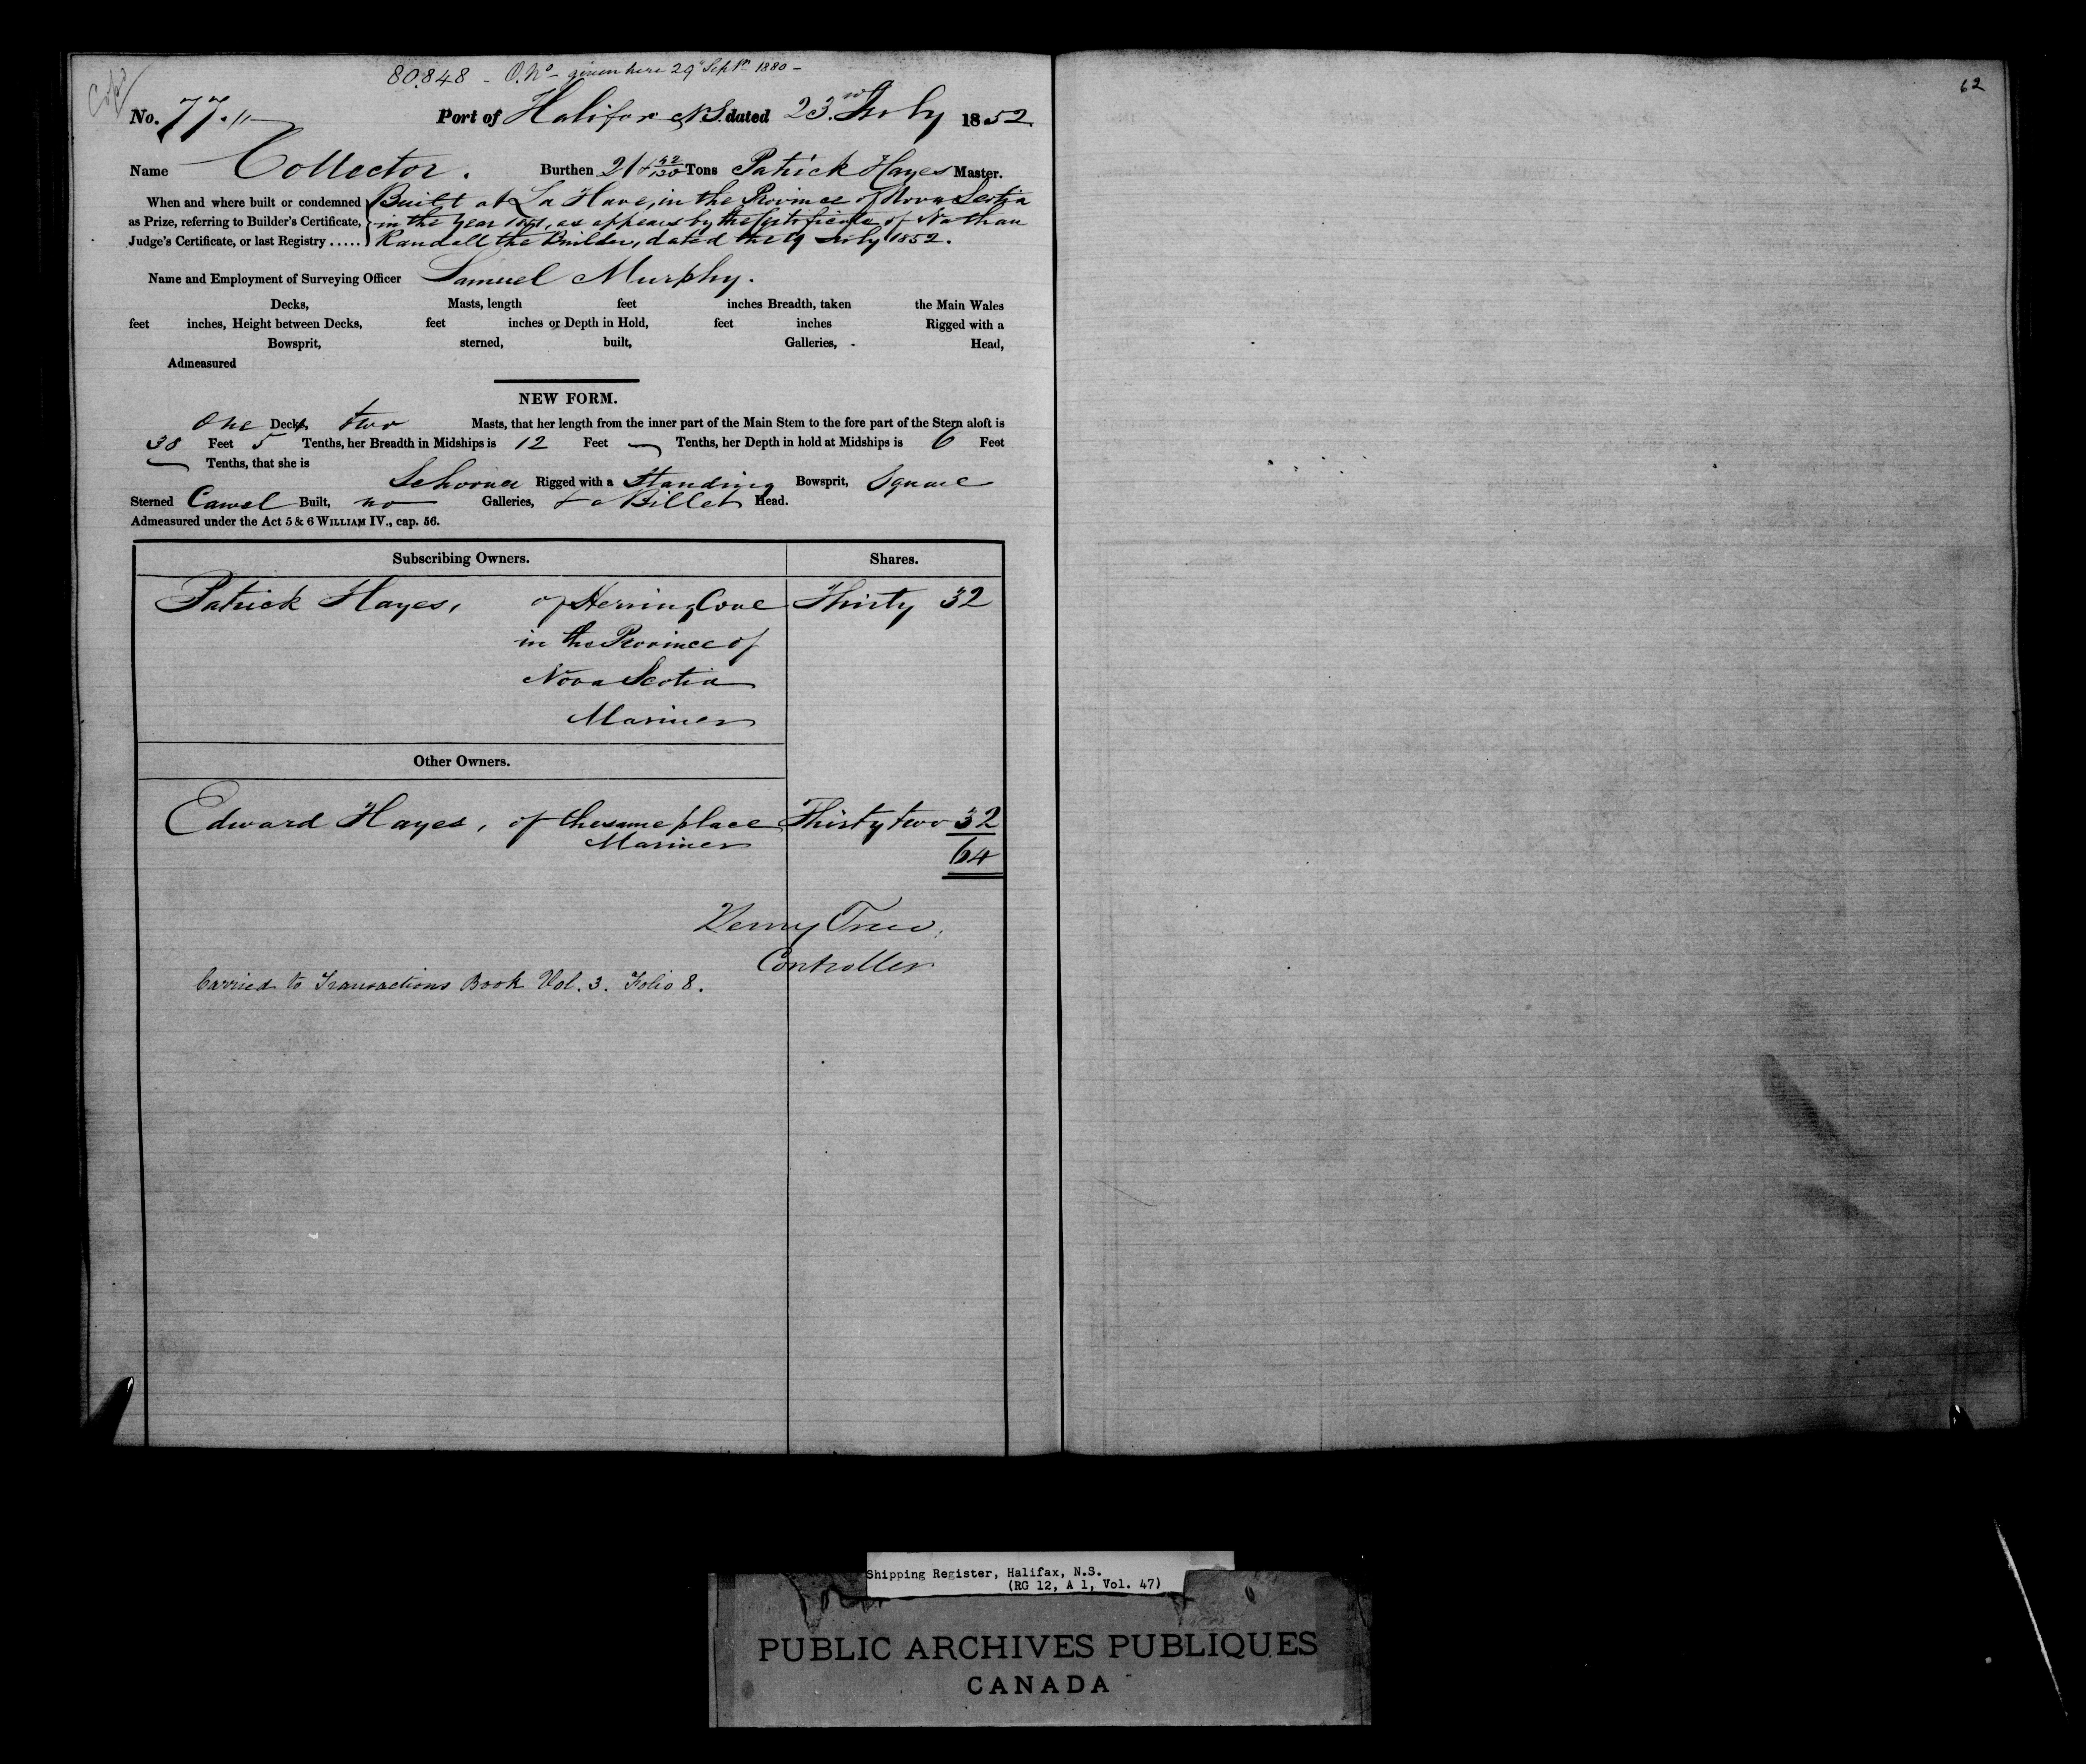 80.848 - O. No given here 29 Septr 1880 -
62
No. 77 Port of Halifax N.S. dated 23rd July 1852.
Name Collector. Burthen 21 Tons Patrick Hayes Master.
When and where built or condemned Built at La Have, in the Province of Nova Scotia
as Prize, referring to Builder's Certificate, in the Year 1851, as appears by the Certificate of Nathan
Judge's Certificate, or last Registry ..... Randall the Builder, dated the 19 July 1852.
Name and Employment of Surveying Officer Samuel Murphy.
Decks, Masts, length feet inches Breadth, taken the Main Wales
feet inches, Height between Decks, feet inches or Depth in Hold, feet inches Rigged with a
Bowsprit, sterned, built, Galleries, Head,
Admeasured
NEW FORM.
One Deck, two Masts, that her length from the inner part of the Main Stem to the fore part of the Stern aloft is
38 Feet 5 Tenths, her Breadth in Midships is 12 Feet — Tenths, her Depth in hold at Midships is 6 Feet
— Tenths, that she is
Schooner Rigged with a Standing Bowsprit, Square
Sterned Carvel Built, no Galleries, & a Billet Head.
Admeasured under the Act 5 & 6 WILLIAM IV., cap. 56.
Subscribing Owners. Shares.
Patrick Hayes, of Herring Cove Thirty 32
in the Province of
Nova Scotia
Mariner
Other Owners.
Edward Hayes, of the same place Thirty two 32
Mariner
64
Henry Trew.
Controller
Carried to Transactions Book Vol. 3. Folio 8.
Shipping Register, Halifax, N.S.
(RG 12, A 1, Vol. 47)
PUBLIC ARCHIVES PUBLIQUES
CANADA